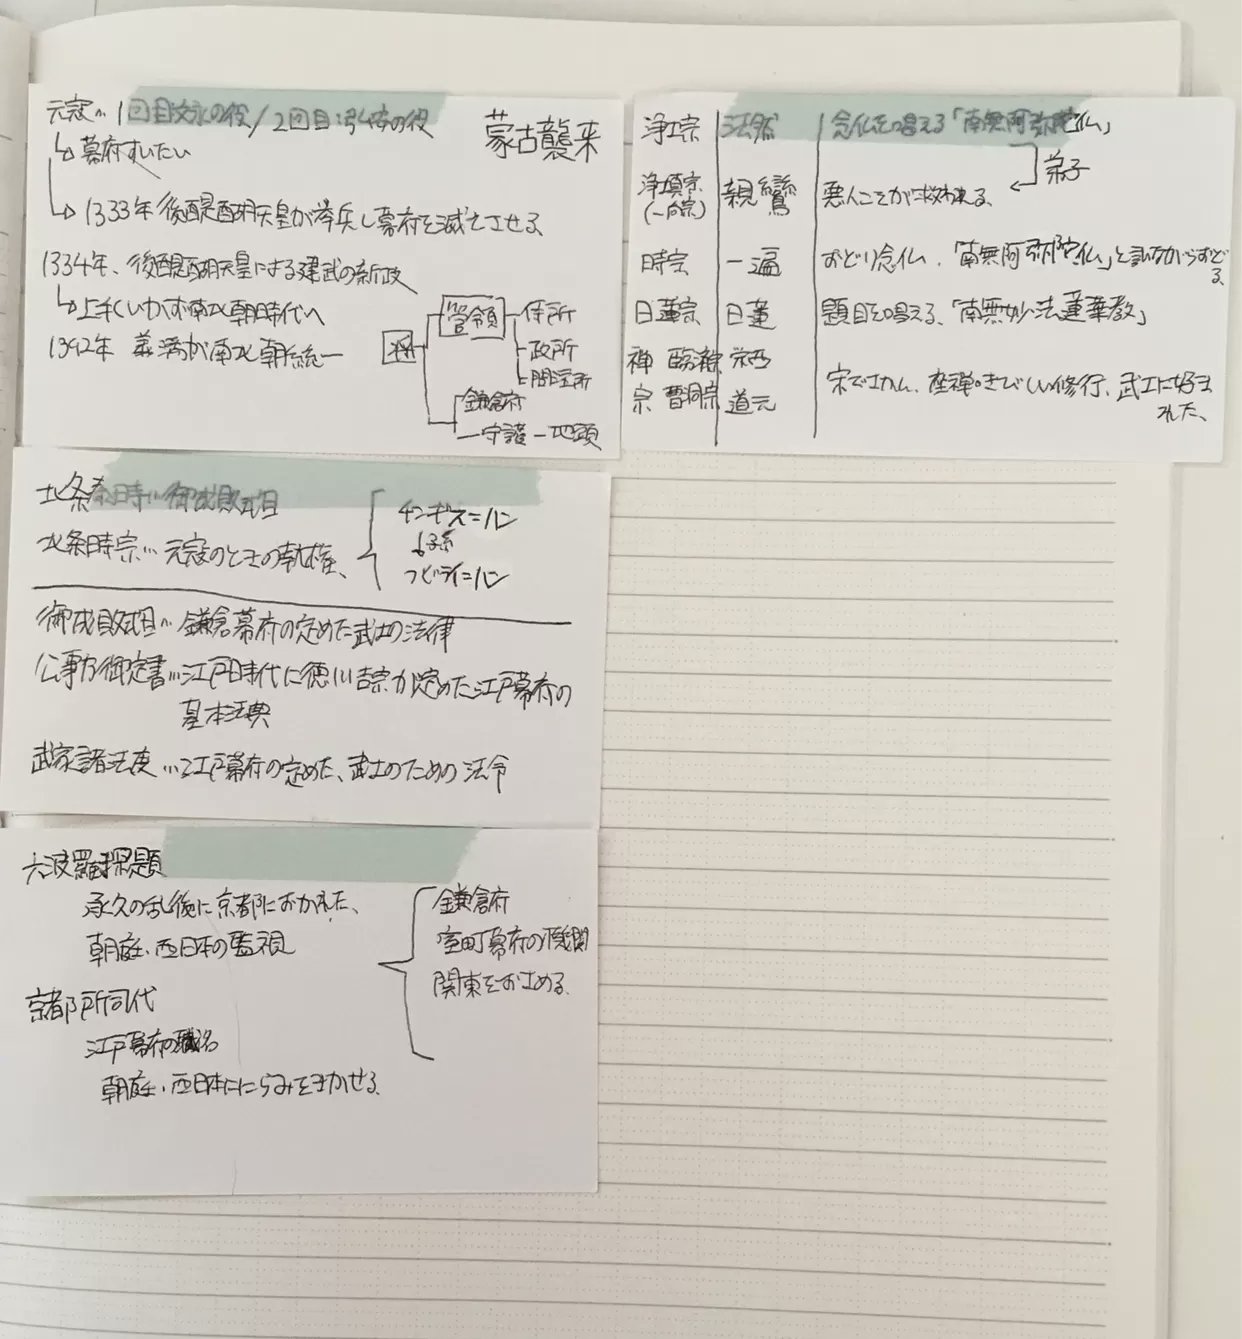 元寇… 1回目:文永の役/2回目:弘安の役
蒙古襲来
↳幕府すいたい
↳1333年後醍醐天皇が挙兵し幕府を滅亡させる
1334年、後醍醐天皇による建武の新政
↳上手くいかず南北朝時代へ
1392年 義満が南北朝統一
将
管領
侍所
政所
問注所
鎌倉府
守護 地頭
浄土宗 法然 念仏を唱える「南無阿弥陀仏」
弟子
浄土真宗 (一向宗) 親鸞 悪人こそが救われる。
時宗 一遍 おどり念仏、「南無阿弥陀仏」と言いながらおどる。
日蓮宗 日蓮 題目を唱える、「南無妙法蓮華教」
禅宗
臨済宗 栄西
曹洞宗 道元
宋でさかん、座禅・きびしい修行、武士に好まれた、
北条泰時…御成敗式目
北条時宗… 元寇のときの執権、
チンギス=ハン
↓子孫
フビライ=ハン
御成敗式目… 鎌倉幕府の定めた武士の法律
公事方御定書…江戸時代に徳川吉宗が定めた江戸幕府の
基本法典
武家諸法度…江戸幕府の定めた、武士のための法令
六波羅探題
承久の乱後に京都におかれた、
朝庭・西日本の監視
京都所司代
江戸幕府の職名
朝庭・西日本ににらみをきかせる
鎌倉府
室町幕府の機関
関東をおさめる